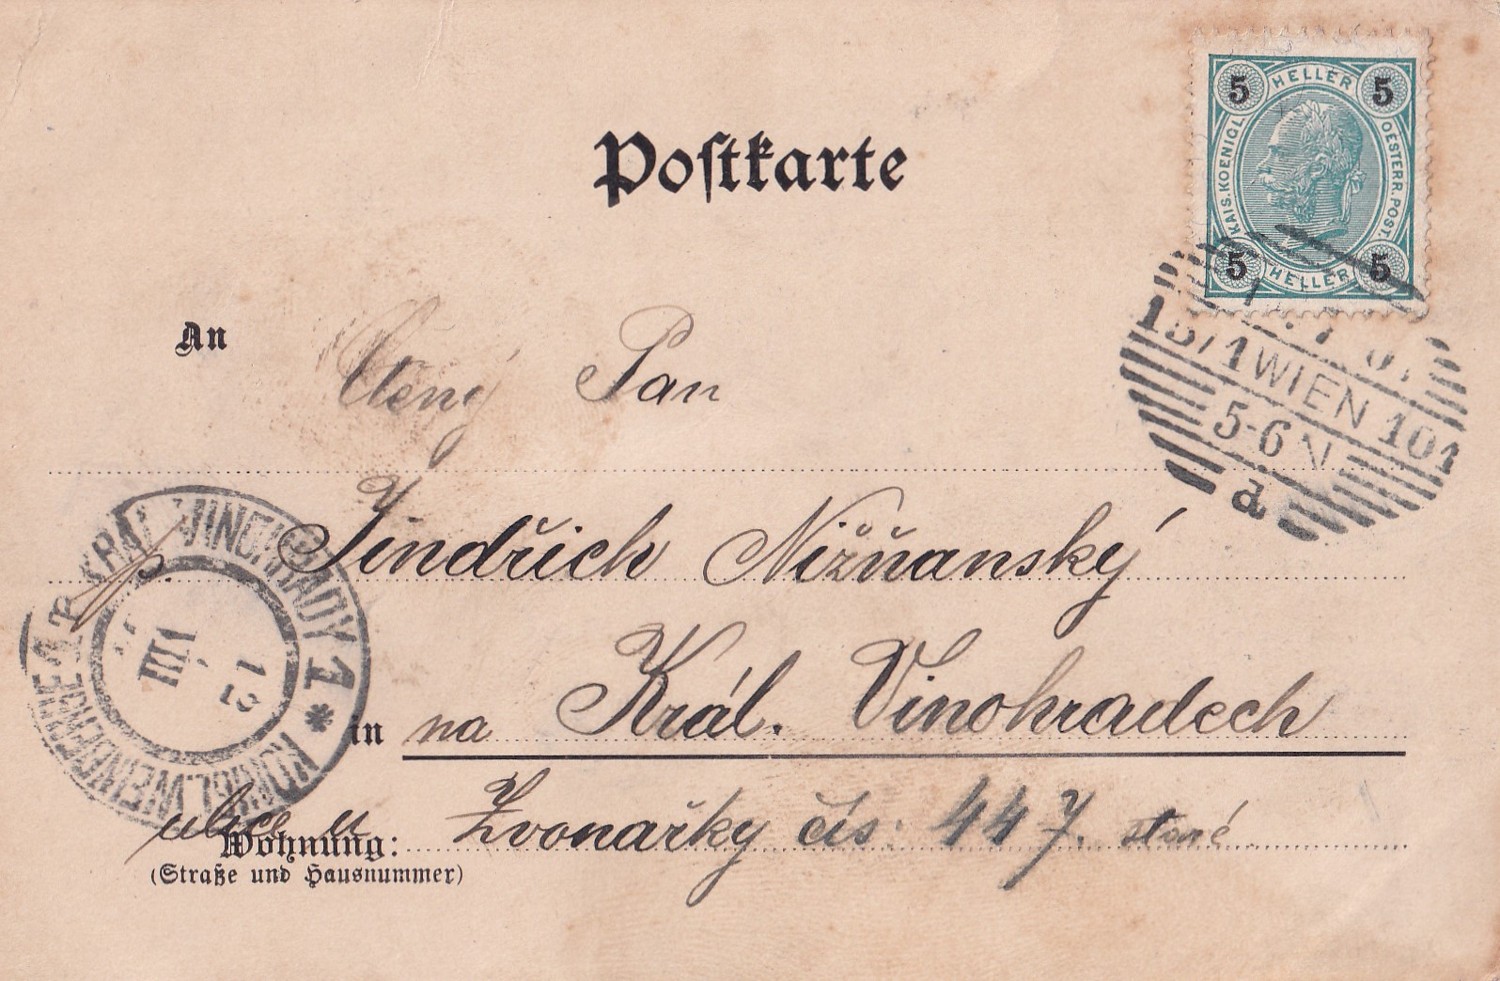 Postkarte
5 HELLER 5
KAIS. KOENIGL. OESTERR. POST.
5 HELLER 5
An
Ctěný Pan
Jindřich Nižňanský
p.
in na Král. Vinohradech
ulice u Zvonařky čís. 447. staré
Wohnung:
(Straße und Hausnummer)
15/1 WIEN 101
5-6 N
a
KRÁL. VINOHRADY 1 * KÖNIGL. WEINBERGE 1
13
VII